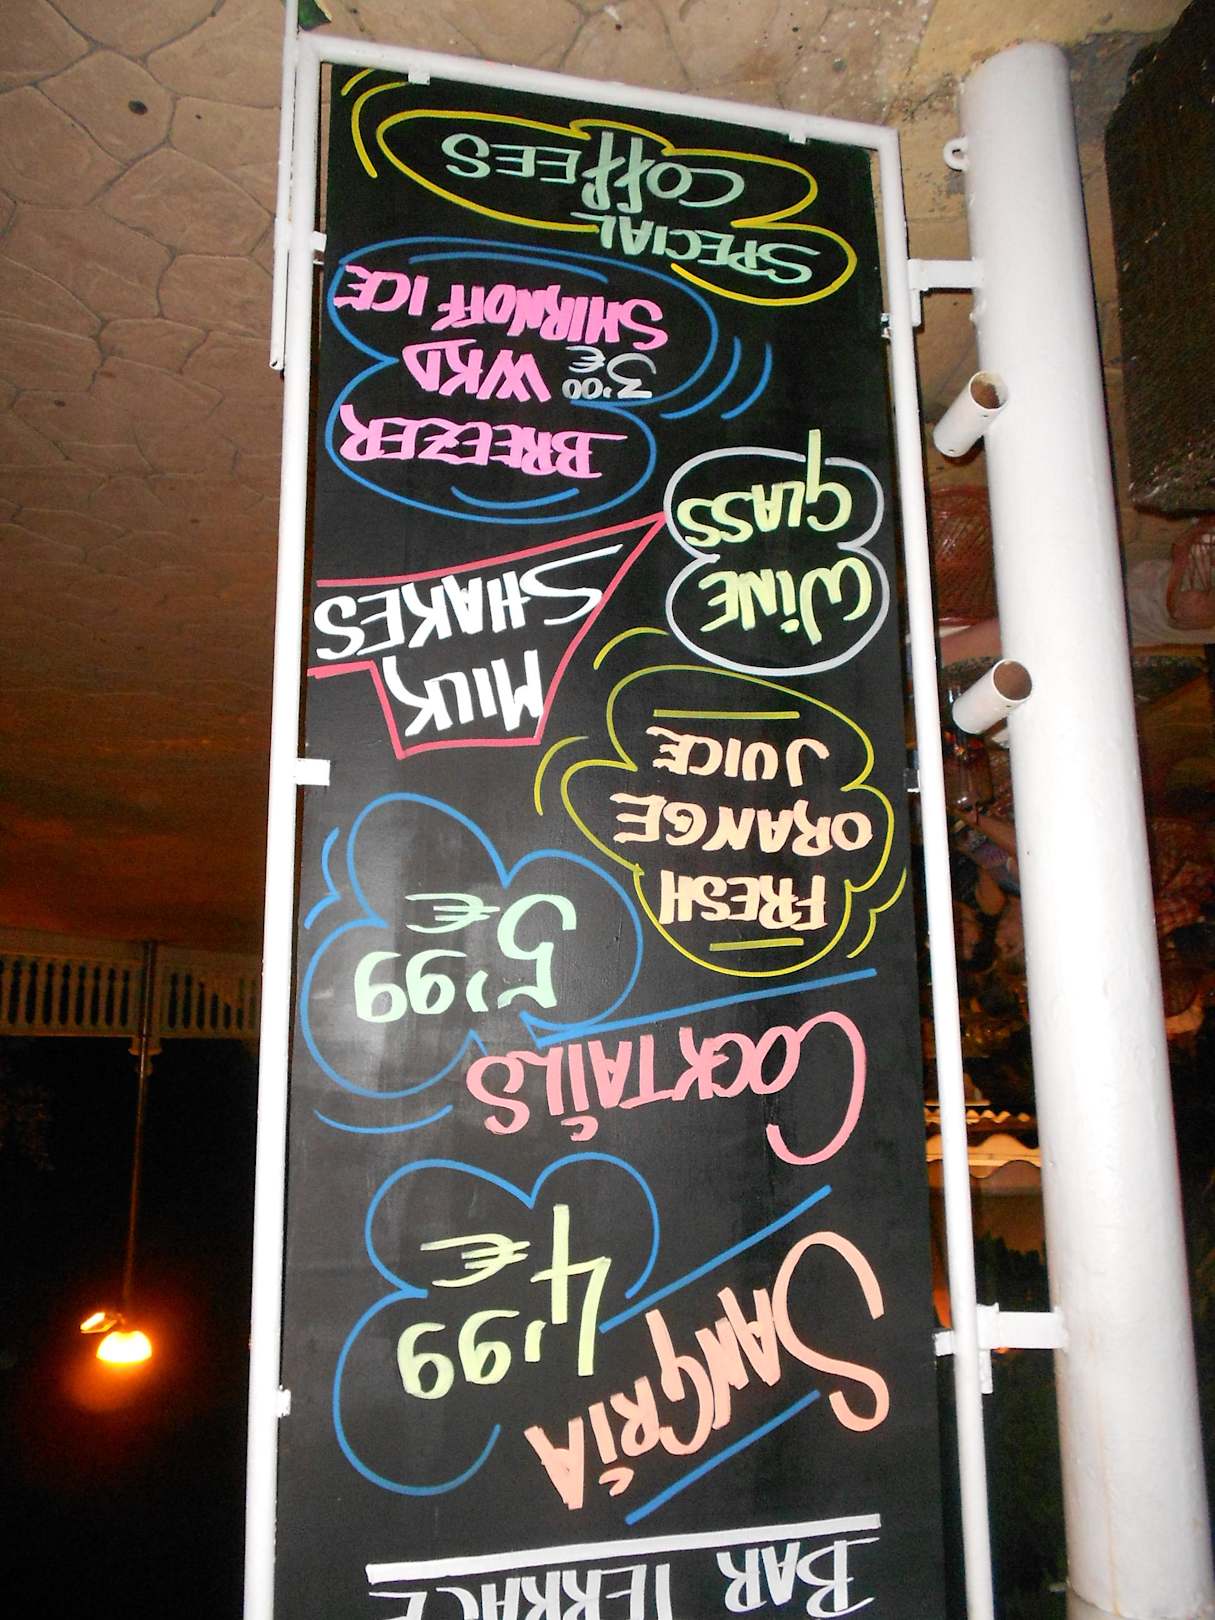 BAR TERRACE
SANGRiA
4'99
€
COCKTAiLS
5'99
€
FRESH
ORANGE
JUICE
MILK
SHAKES
WiNE
GLASS
BREEZER
3'00
€
WKD
SMIRNOFF ICE
SPECIAL
COFFEES